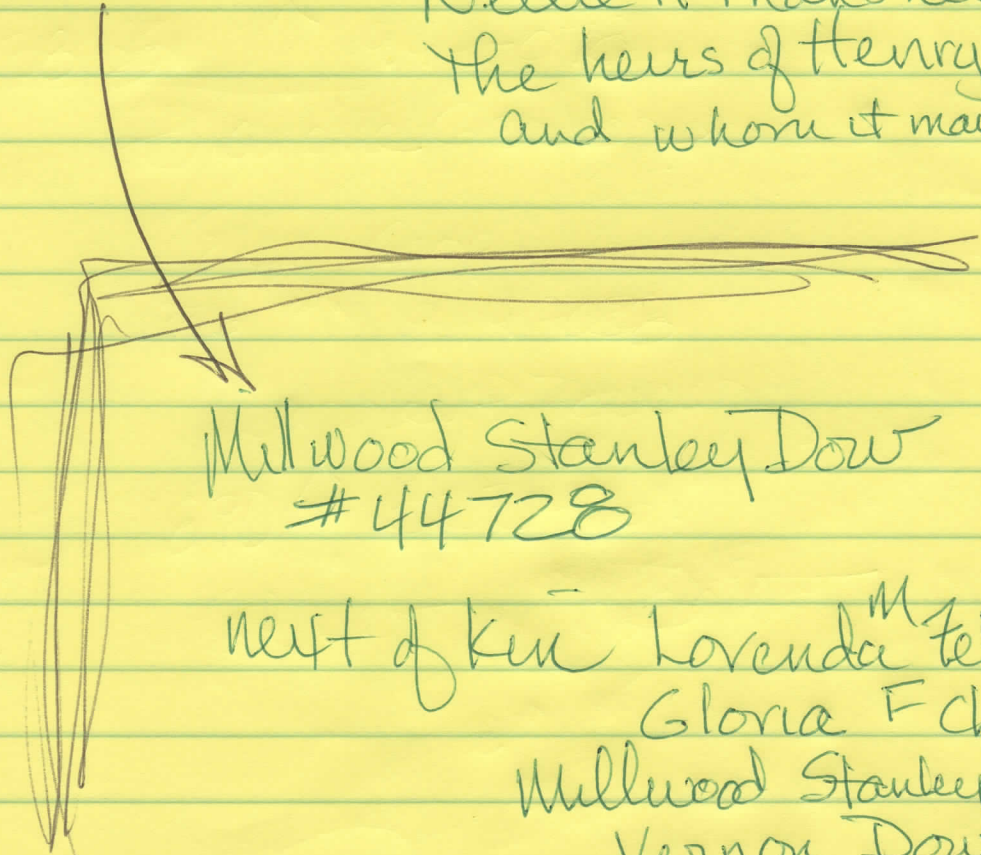 The heirs of Henry
and whom it may
Millwood Stanley Dow
#44728
next of kin Lorenda M
Gloria F
Millwood Stanley
Vernon Dow